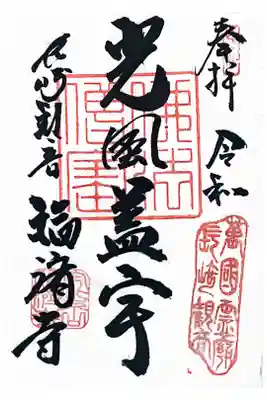 奉拝 令和
光風蓋宇
長崎観音 福済寺
萬国霊廟
長崎観音